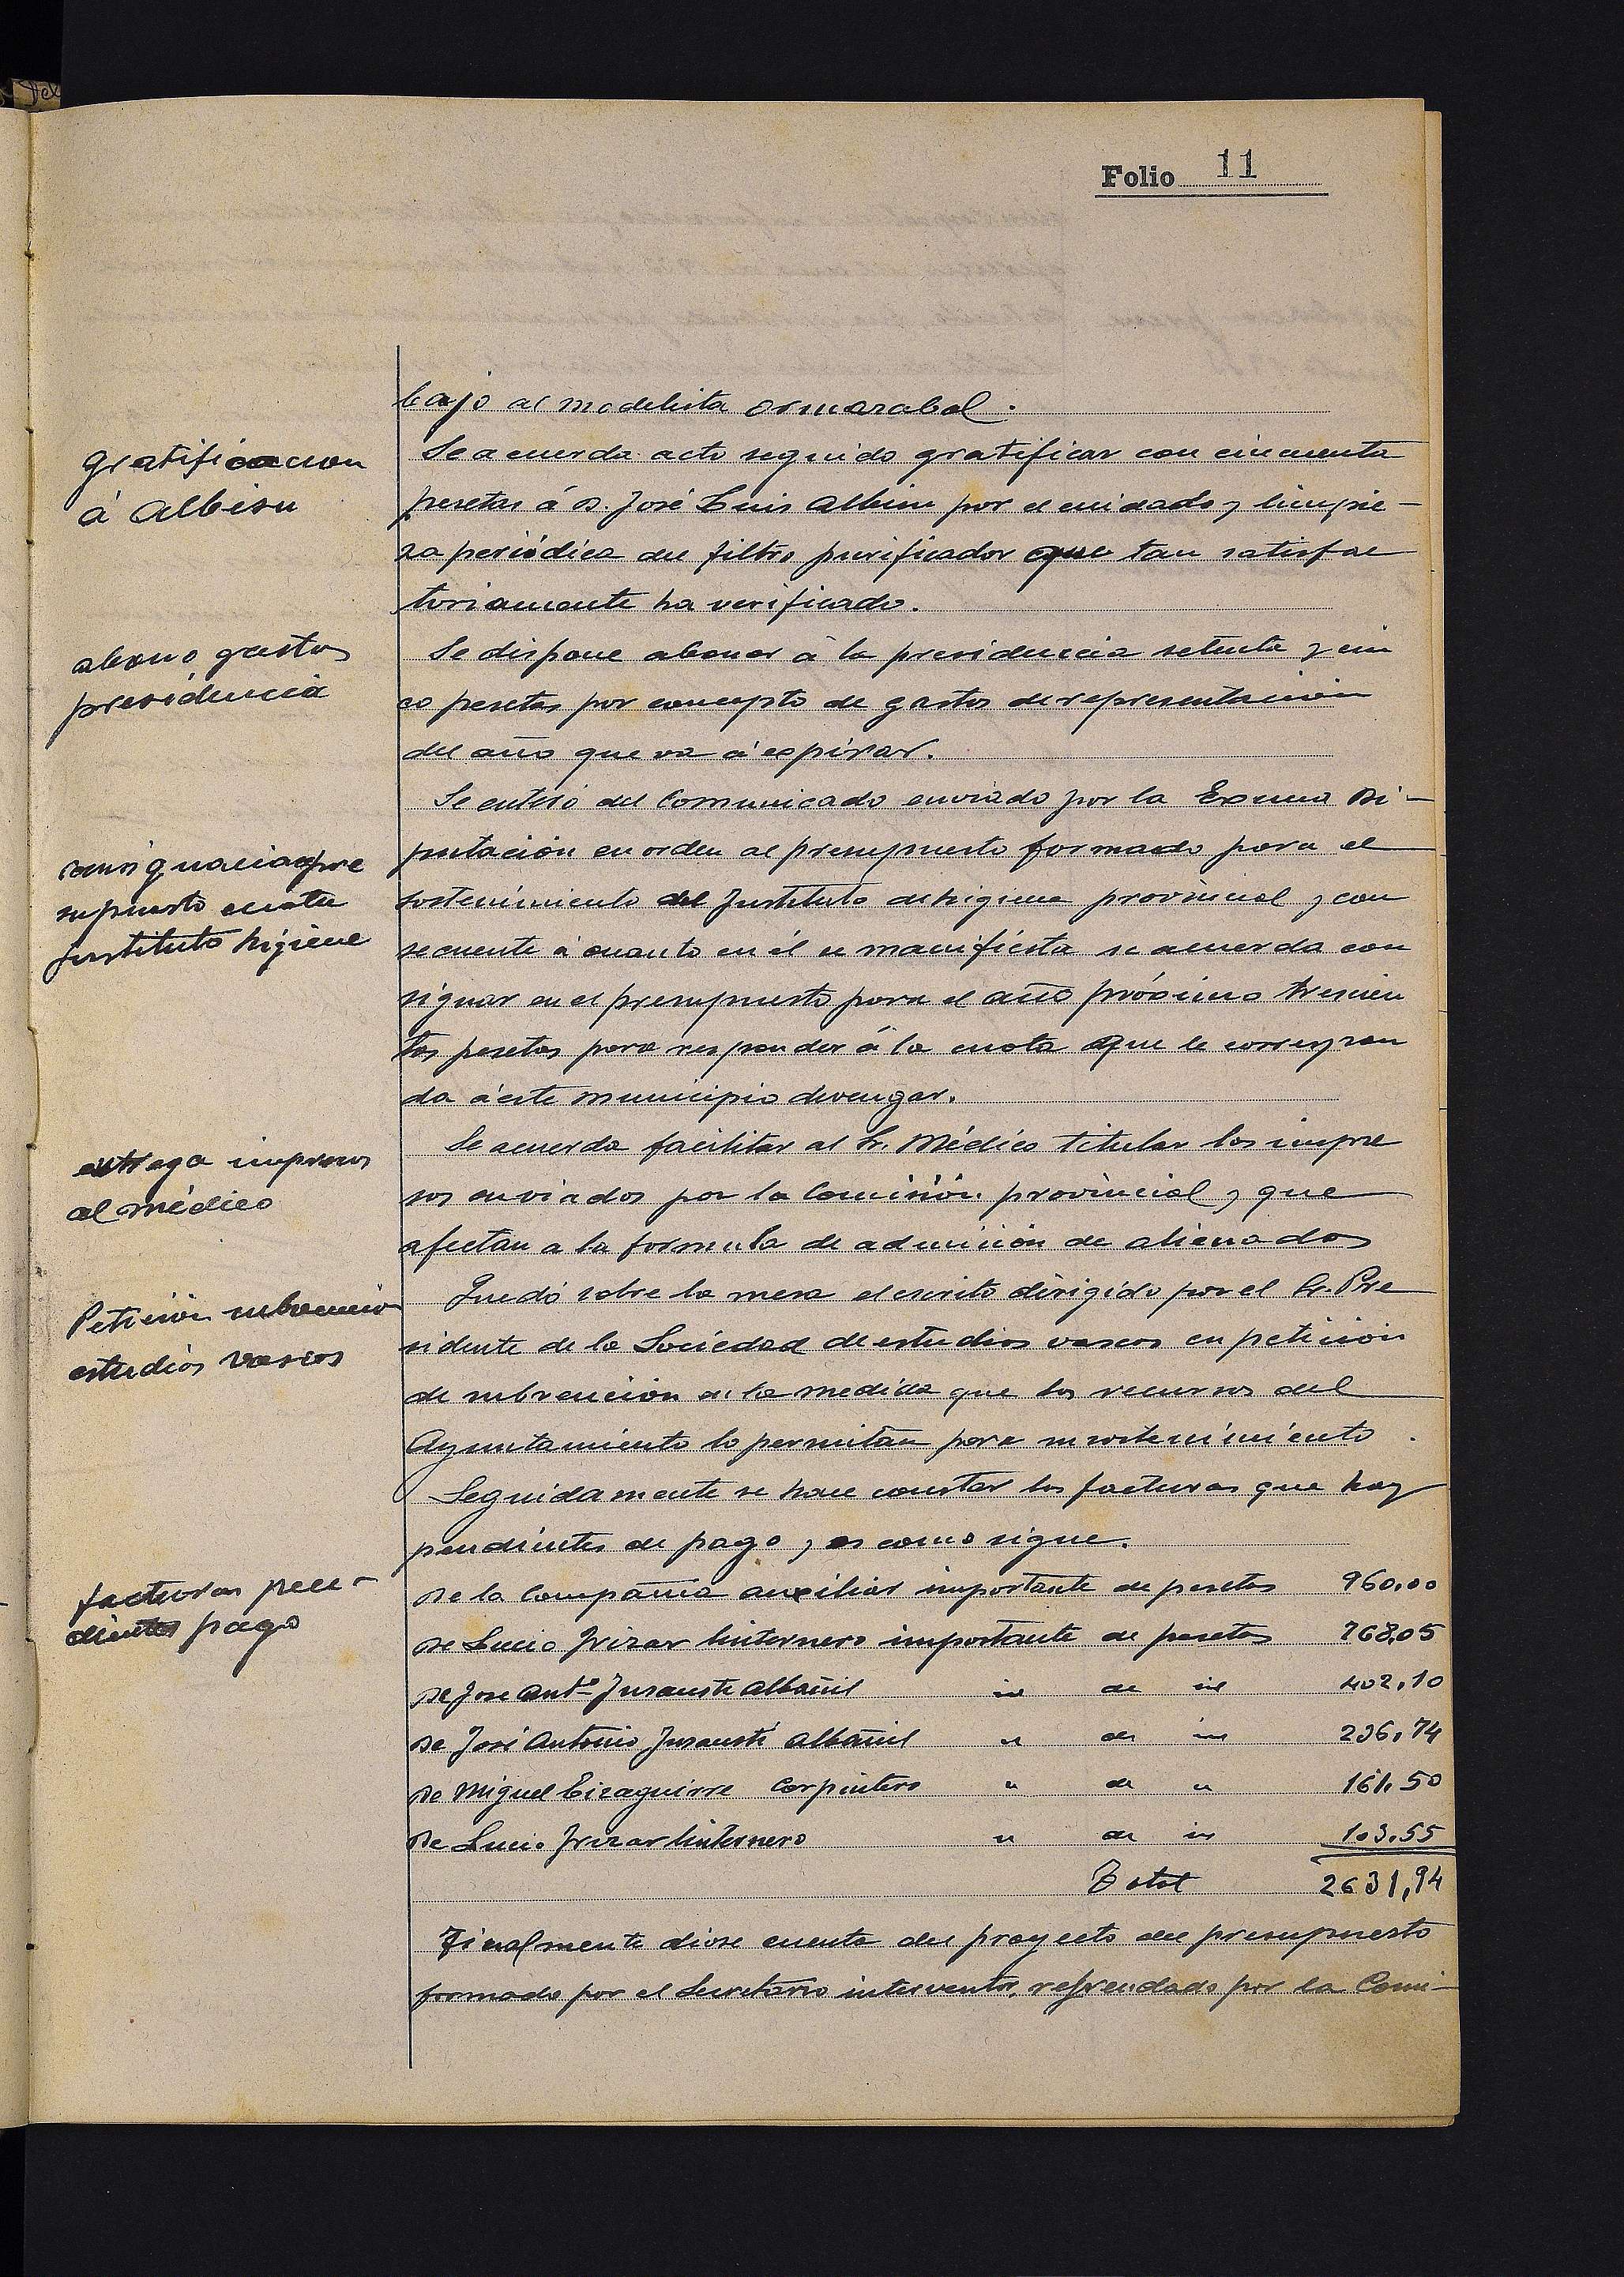 Folio 11
bajo al modelista Ormazabal.
Gratificacion
á Albisu
Se acuerda acto seguido gratificar con cincuenta
pesetas á D. José Luis Albisu por el cuidado y limpie-
za periódica del filtro purificador que tan satisfac
toriamente ha verificado.
abono gastos
presidencia
Se dispone abonar á la presidencia setenta y cin
co pesetas por concepto de gastos de representación
del año que va á expirar.
Se enteró del Comunicado enviado por la Excma Di-
consignacion pre
supuesto cuota
Instituto higiene
putación en orden al presupuesto formado para el
sostenimiento del Instituto de higiene provincial y con
secuente á cuanto en él se manifiesta se acuerda con
signar en el presupuesto para el año próximo trescien
tas pesetas para responder á la cuota que le correspon
da á este municipio devengar.
entrega impresos
al médico
Se acuerda facilitar al Sr. Médico titular los impre
sos enviados por la Comisión provincial y que
afectan a la formula de admisión de alienados
Petición subvencion
estudios vascos
Quedó sobre la mesa el escrito dirigido por el Sr. Pre
sidente de la Sociedad de estudios vascos en petición
de subvención en la medida que los recursos del
Ayuntamiento lo permitan para su sostenimiento.
Seguidamente se hace constar las facturas que hay
pendientes de pago y es como sigue.
facturas pen-
dientes pago
De la Compañia auxiliar importante de pesetas 960,00
De Lucio Irizar linternero importante de pesetas 768,05
De Jose Antº Insausti Albañil id de id 402,10
De José Antonio Insausti albañil " de id 236,74
De Miguel Eizaguirre Carpintero " de " 161,50
De Lucio Irizar linternero " de id 103,55
Total 2631,94
Finalmente diose cuenta del proyecto del presupuesto
formado por el Secretario interventor, refrendado por la Comi-